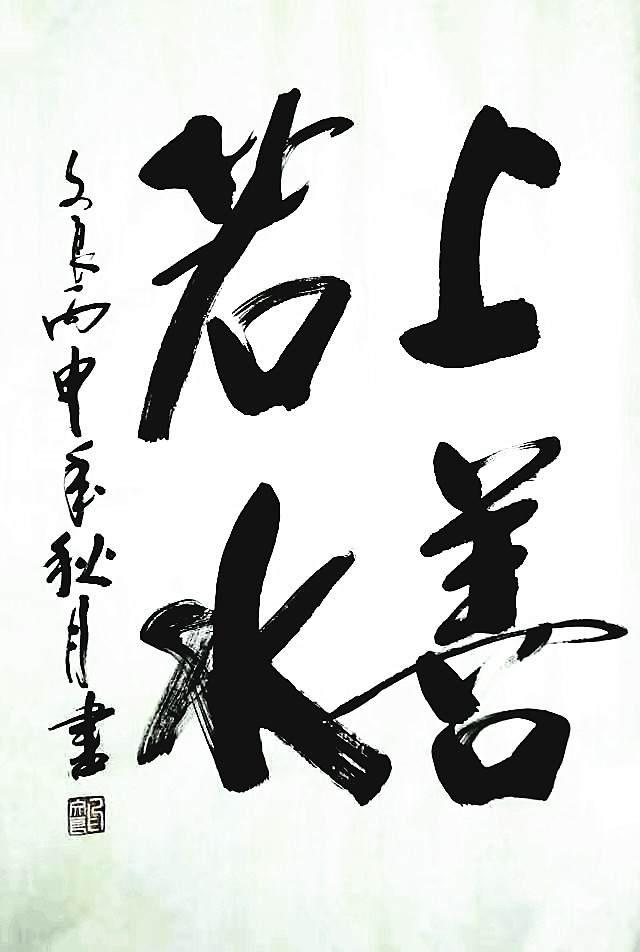 上善
若水
文良丙申年秋月書